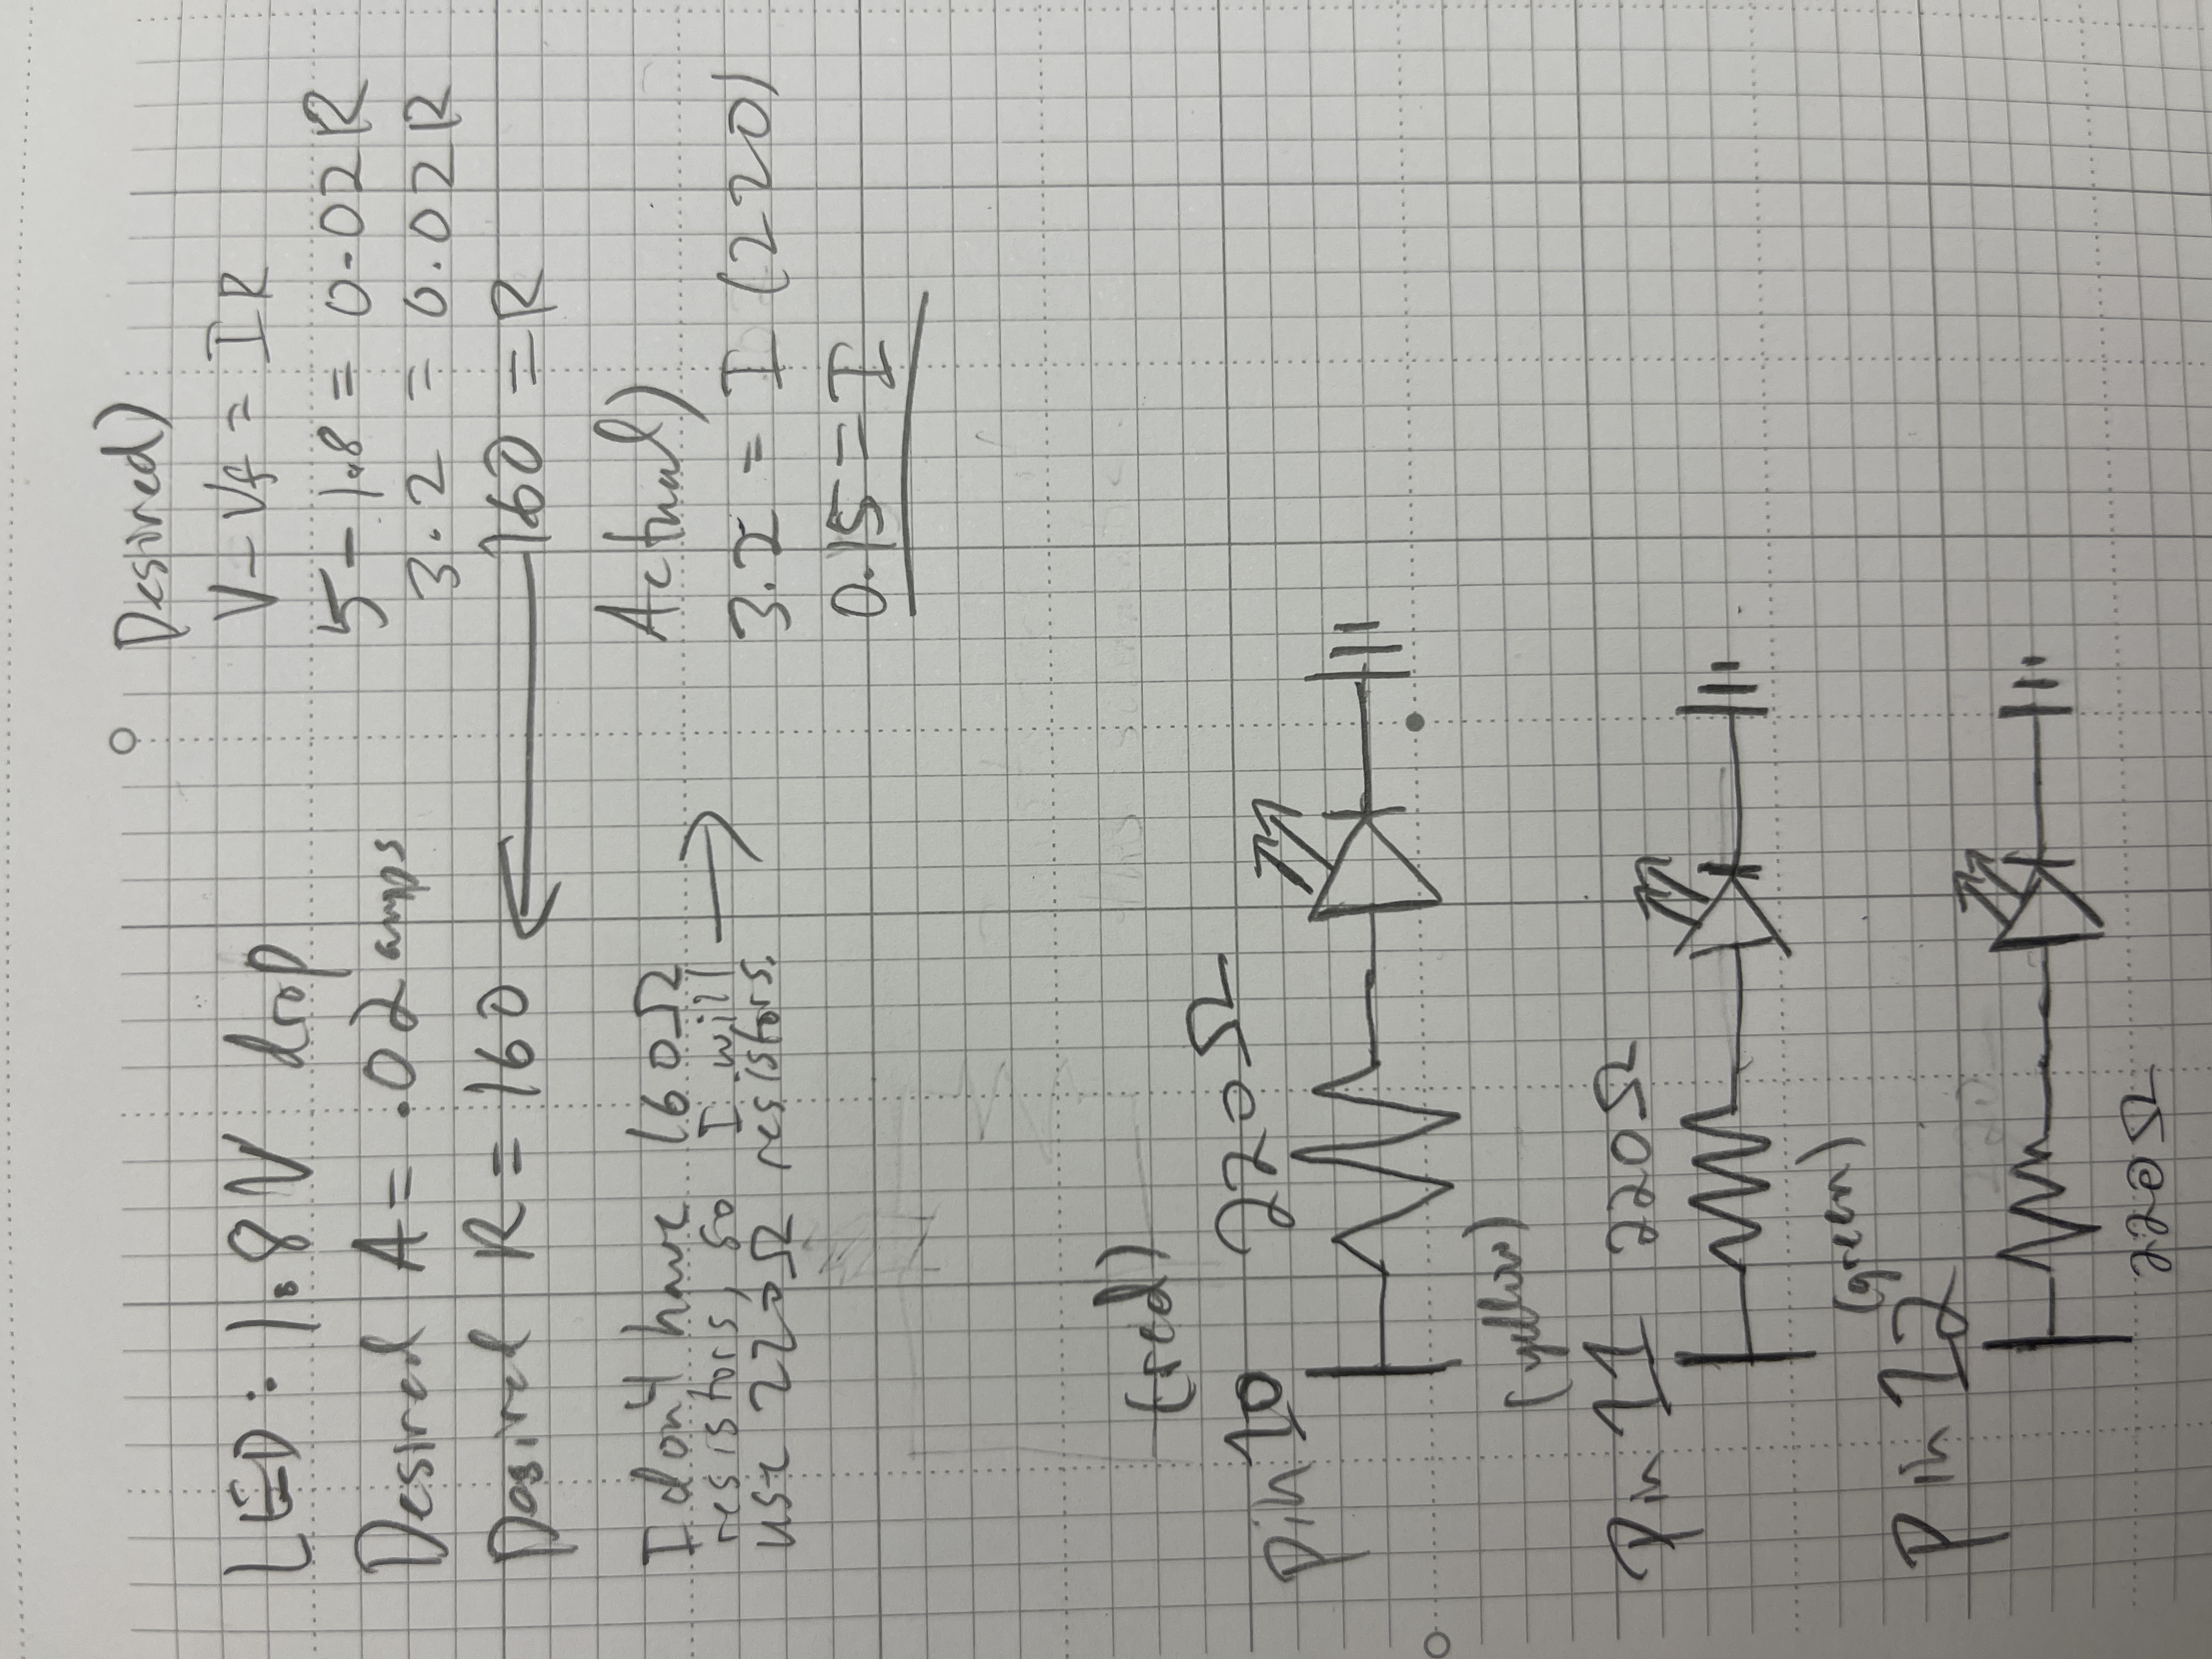 LED: 1.8V drop
Desired A = .02 amps
Desired R = 160
I don't have 160Ω
resistors, so I will
use 220Ω resistors.
Desired)
V - Vf = IR
5 - 1.8 = 0.02R
3.2 = 0.02R
160 = R
Actual)
3.2 = I (220)
0.15 = I
(red)
Pin 10 220Ω
(yellow)
Pin 11 220Ω
(green)
Pin 12
220Ω